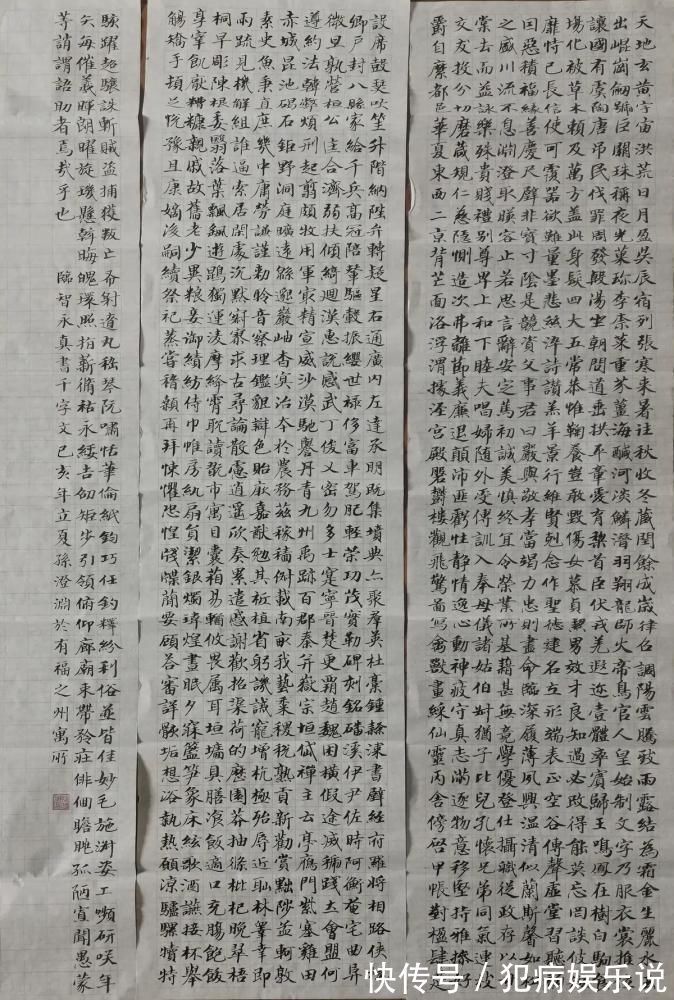 天地玄黄宇宙洪荒日月盈昃辰宿列張寒来暑往秋收冬藏閏餘成歲律召調陽雲騰致雨露結為霜金生麗水玉
出崐崗劒號巨闕珠稱夜光菓珎李柰菜重芥薑海醎河淡鱗潛羽翔龍師火帝鳥官人皇始制文字乃服衣裳推位
讓國有虞陶唐吊民伐罪周發殷湯坐朝問道垂拱平章愛育黎首臣伏戎羌遐迩壹體率賓歸王鳴鳳在樹白駒食
場化被草木賴及萬方盖此身髮四大五常恭惟鞠養豈敢毀傷女慕貞絜男效才良知過必改得能莫忘罔談彼短
靡恃己長信使可覆器欲難量墨悲絲淬詩讚羔羊景行維賢剋念作聖德建名立形端表正空谷傳聲虛堂習聽禍
因惡積福緣善慶尺璧非寶寸陰是競資父事君曰嚴與敬孝當竭力忠則盡命臨深履薄夙興溫凊似蘭斯馨如松
之盛川流不息淵澄取暎容止若思言辭安定篤初誠美慎終宜令榮業所基藉甚無竟學優登仕攝職從政存以甘
棠去而益詠樂殊貴賤禮別尊卑上和下睦夫唱婦隨外受傅訓入奉母儀諸姑伯叔猶子比兒孔懷兄弟同氣連枝
交友投分切磨箴規仁慈隱惻造次弗離節義廉退顛沛匪虧性靜情逸心動神疲守真志滿逐物意移堅持雅操好
爵自縻都邑華夏東西二京背芒面洛浮渭據涇宮殿磐鬱樓觀飛驚圖寫禽獸畫綵仙靈丙舍傍啓甲帳對楹肆筵
設席鼓瑟吹笙升階納陛弁轉疑星右通廣內左達承明既集墳典亦聚群英杜稾鍾隸漆書壁經府羅將相路俠槐
卿戶封八縣家給千兵高冠陪輦驅轂振纓世祿侈富車駕肥輕策功茂實勒碑刻銘磻溪伊尹佐時阿衡奄宅曲阜
微旦孰營桓公匡合濟弱扶傾綺迴漢惠說感武丁俊乂密勿多士寔寧晉楚更霸趙魏困橫假途滅虢踐土會盟何
遵約法韓弊煩刑起翦頗牧用軍最精宣威沙漠馳譽丹青九州禹跡百郡秦并嶽宗恒岱禪主云亭鴈門紫塞雞田
赤城昆池碣石鉅野洞庭曠遠緜邈巖岫杳冥治本於農務茲稼穡俶載南畝我藝黍稷稅熟貢新勸賞黜陟孟軻敦
素史魚秉直庶幾中庸勞謙謹勑聆音察理鑑貌辯色貽厥嘉猷勉其祗植省躬譏誡寵增抗極殆辱近恥林皋幸即
兩疏見機解組誰逼索居閑處沉默寂寥求古尋論散慮逍遙欣奏累遣慼謝歡招渠荷的歷園莽抽條枇杷晚翠梧
桐早彫陳根委翳落葉飄颻遊鵾獨運凌摩絳霄耽讀翫市寓目囊箱易輶攸畏屬耳垣墻具膳飡飯適口充腸飽飫
享宰飢厭糟糠親戚故舊老少異粮妾御績紡侍巾帷房紈扇員潔銀燭煒煌晝眠夕寐藍笋象床絃歌酒讌接杯舉
觴矯手頓足悅豫且康嫡後嗣續祭祀蒸嘗稽顙再拜悚懼恐惶牋牒簡要顧荅審詳骸垢想浴執熱願涼驢騾犢特
駭躍超驤誅斬賊盜捕獲叛亡布射遼丸嵇琴阮嘯恬筆倫紙鈞巧任釣釋紛利俗並皆佳妙毛施淑姿工嚬研咲年
矢每催羲暉朗曜旋璣懸斡晦魄環照指薪脩祜永綏吉劭矩步引領俯仰廊廟束帶矜莊俳佪瞻眺孤陋寡聞愚蒙
等誚謂語助者焉哉乎也 臨智永真書千字文己亥年立夏孫澄淵於有福之州寓所
快传号／犯病娱乐说